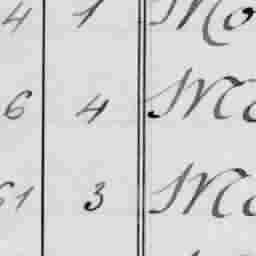 4 1 Mo
6 4 M
61 3 M